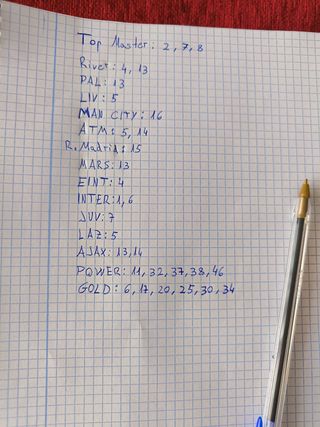 Top Master: 2, 7, 8
River: 4, 13
PAL: 13
LIV: 5
MAN CITY: 16
ATM: 5, 14
R. Madrid: 15
MARS: 13
EINT: 4
INTER: 1, 6
JUV: 7
LAZ: 5
AJAX: 13, 14
POWER: 11, 32, 37, 38, 46
GOLD: 6, 17, 20, 25, 30, 34